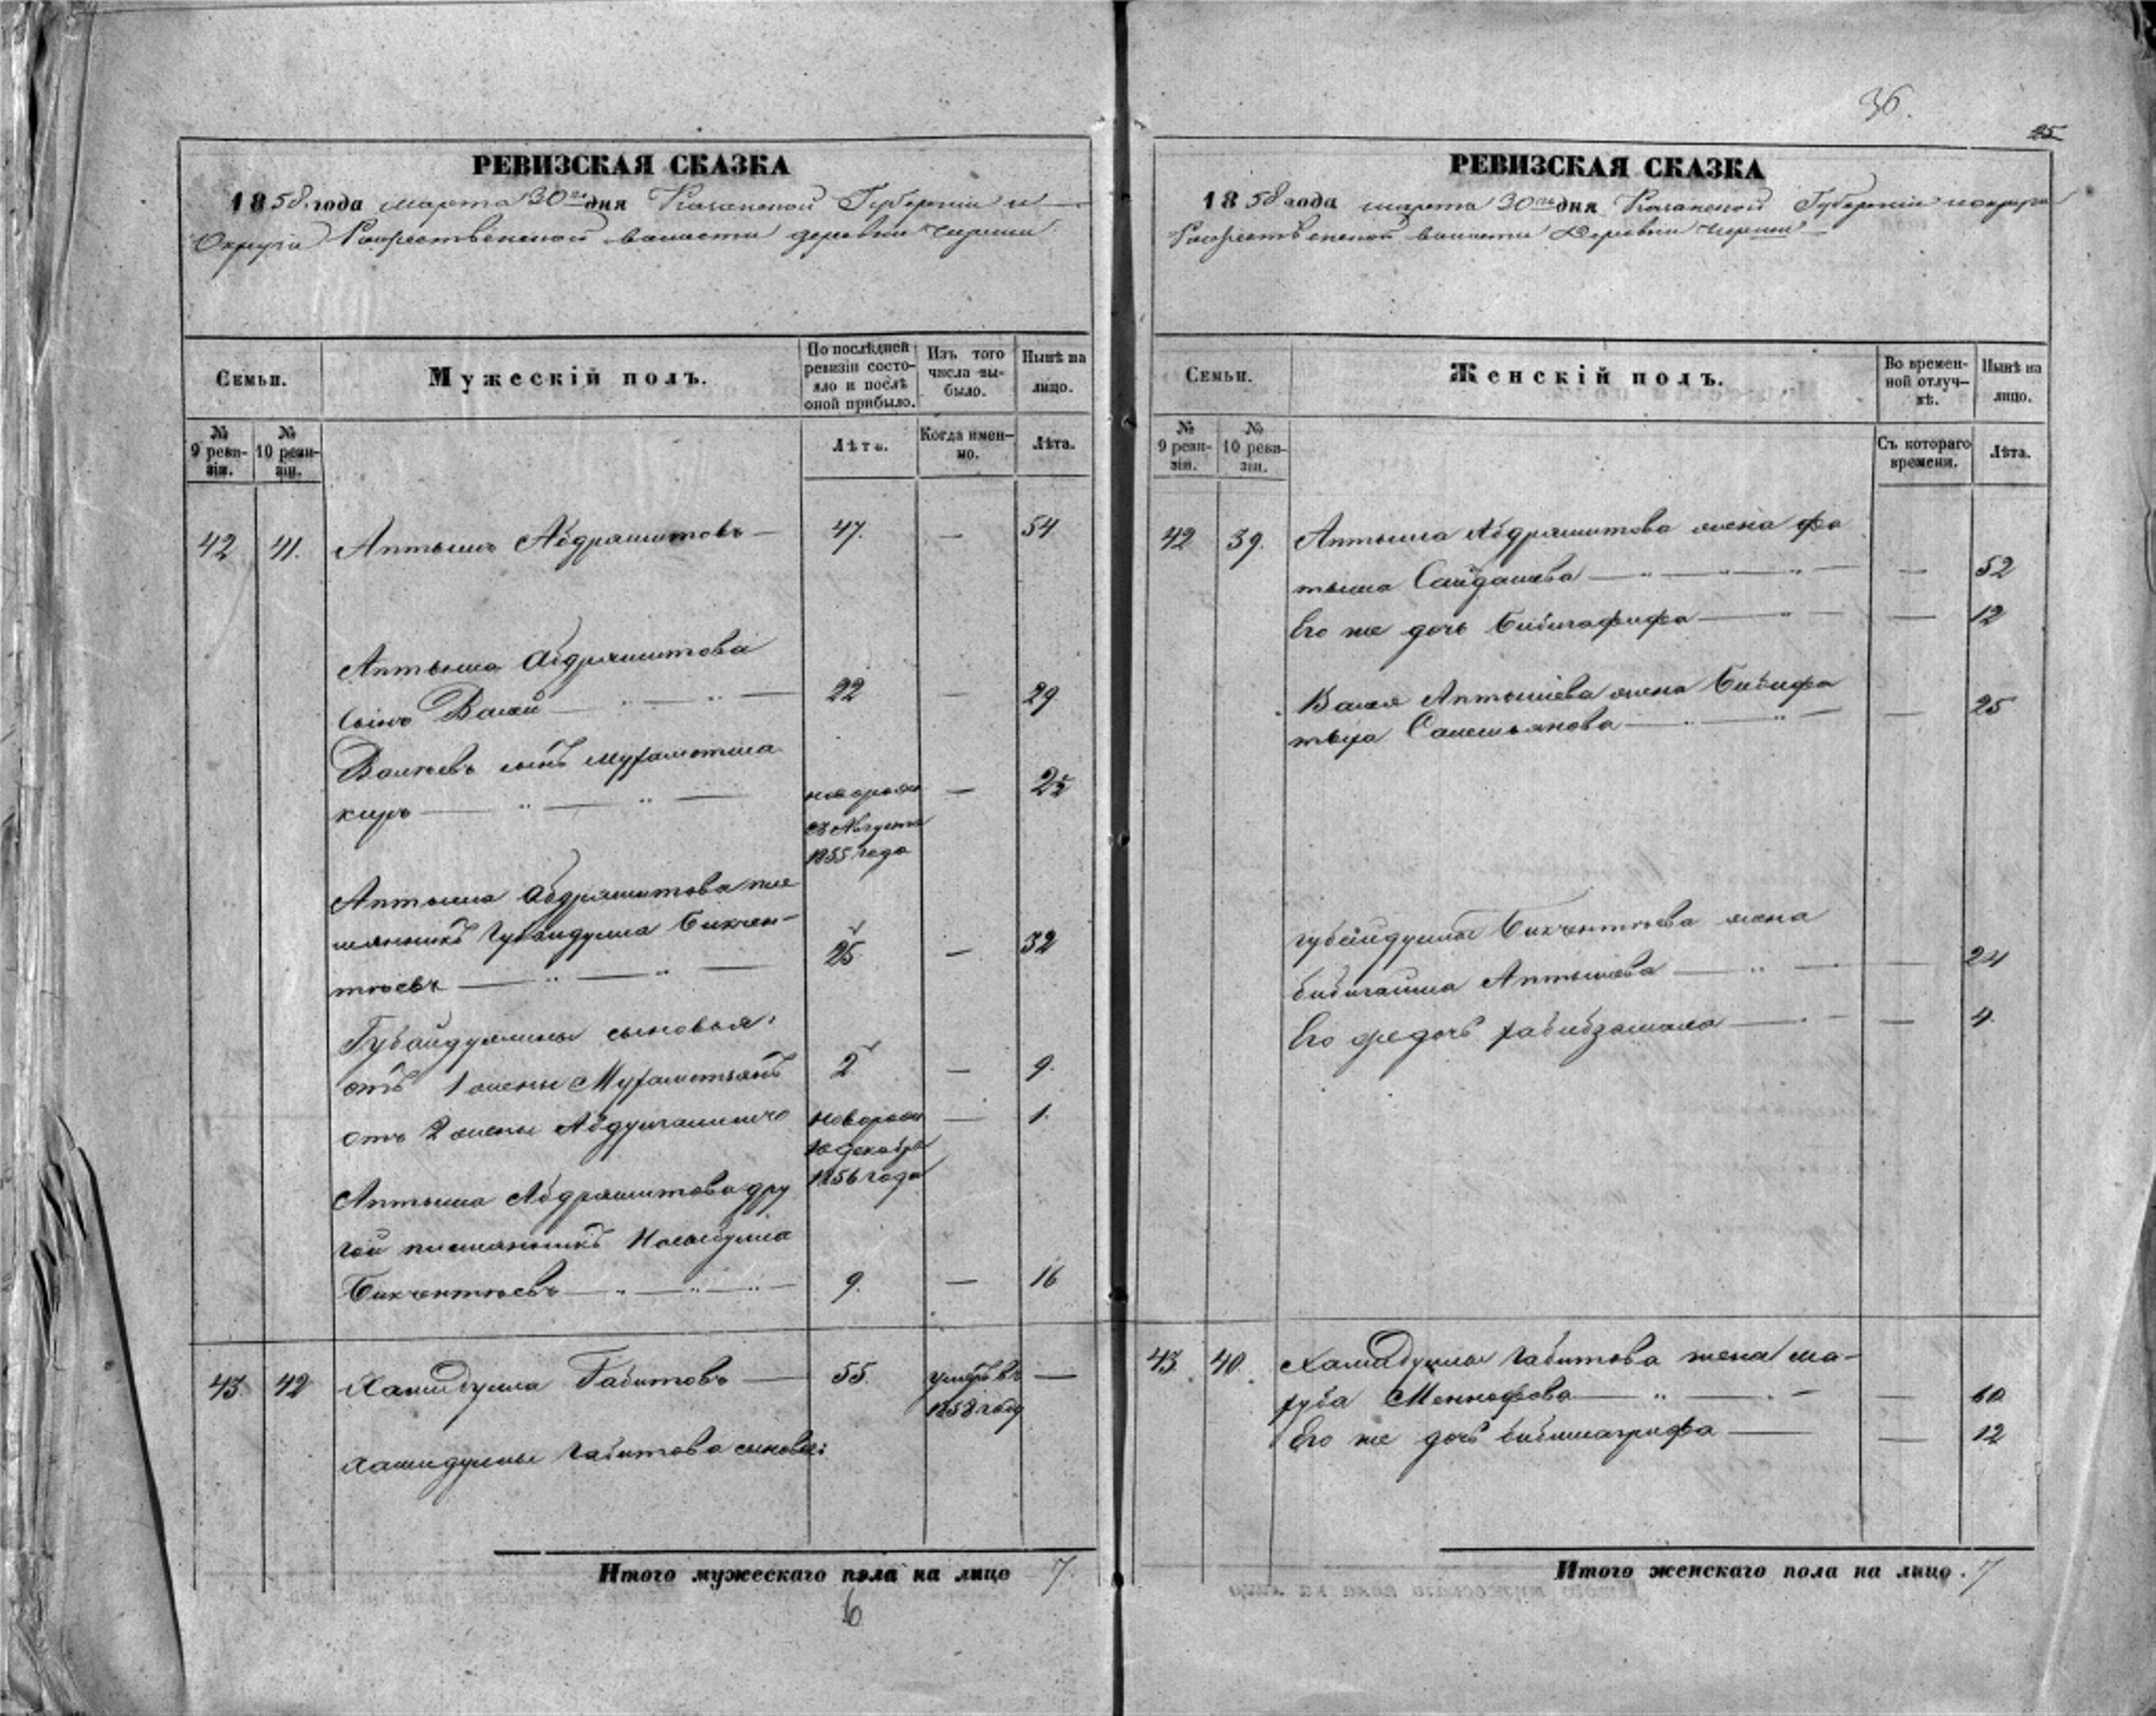 РЕВИЗСКАЯ СКАЗКА
1858 года марта 30го дня Казанской Губернiи и
Округа Рождественской волости деревни
Семьи.
Мужескiй полъ.
По послѣдней ревизiи состояло и послѣ оной прибыло.
Изъ того числа выбыло.
Нынѣ на лицо.
№ 9 ревизiи.
№ 10 ревизiи.
Лѣтъ.
Когда именно.
Лѣта.
42 41. Аптышъ Абдряшитовъ — 47. — 54
Аптыша Абдряшитова
сынъ Валей — 22 — 29
Валѣевъ сынъ Мухаметша
киръ — новорож — 2½
23 Августа
1855 года
Аптыша Абдряшитова пле
мянникъ Губайдулла Бикчен-
тѣевъ — 25 — 32
Губайдуллины сыновья:
отъ 1 жены Мухаметзянъ 2 — 9.
отъ 2 жены новорож — 1.
Декабря
1856 года
Аптыша Абдряшитова дру
гой племянникъ
Бикчентѣевъ — 9. — 16
43. 42 Хамидулла Габитовъ — 55. умеръ въ —
1858 году
Хамидуллы Габитова сыновья:
Итого мужескаго пола на лицо 7.
6
36.
25
РЕВИЗСКАЯ СКАЗКА
1858 года марта 30го дня Казанской Губернiи и округа
Рождественской волости Деревни
Семьи.
Женскiй полъ.
Во временной отлучкѣ.
Нынѣ на лицо.
№ 9 ревизiи.
№ 10 ревизiи.
Съ котораго времени.
Лѣта.
42 39. Аптыша Абдряшитова жена Фа
тыма Сайдашева — — 52
Его же дочь Бибигафифа — — 12
Валея Аптышева жена Бибифа
тыха — — 25
Губайдуллы Бикчентѣева жена
Бибигайша Аптышева — — 24
Его же дочь Хабибзямала — — 4.
43 40. Хамидуллы Габитова жена Ма-
хуба — — 60
Его же дочь — — 12
Итого женскаго пола на лицо. 7